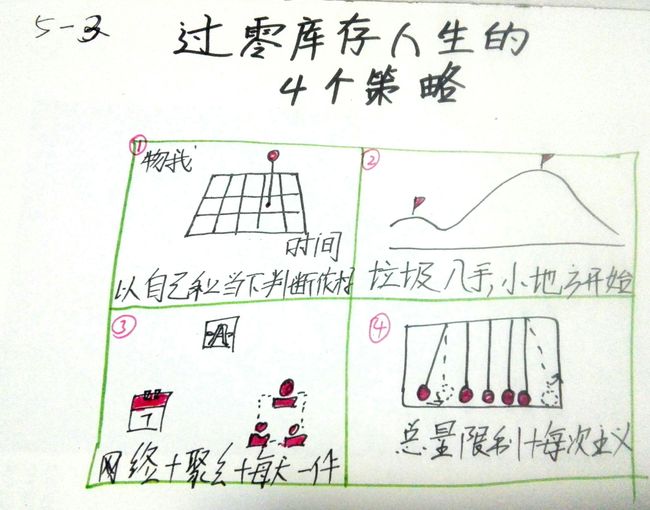 5-3
过零库存人生的
4个策略
①
物我
时间
以自己和当下判断依据
②
垃圾入手,小地方开始
③
A
7
网络+聚会+每天一件
④
总量限制+每次主义